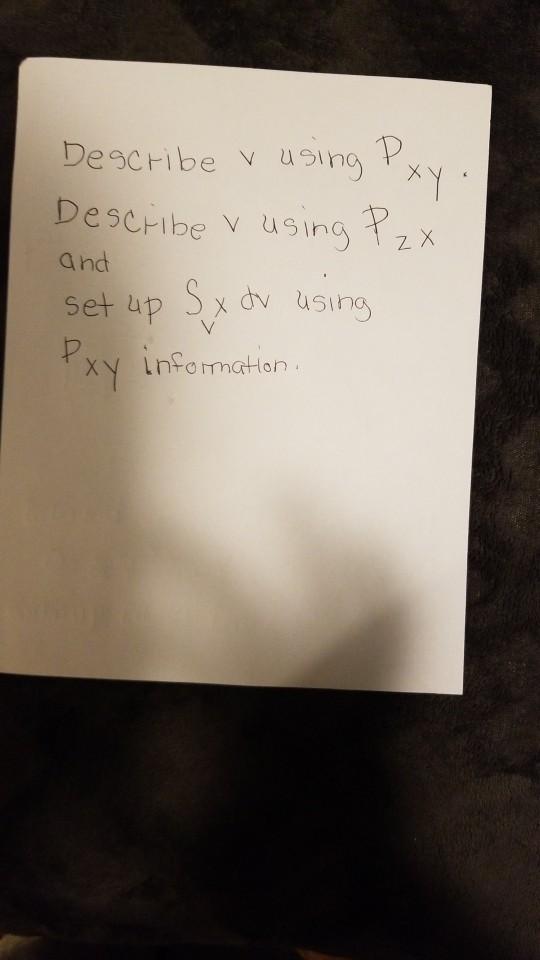 Describe v using Pxy.
Describe v using Pzx
and
set up Sx dv using
v
Pxy information.